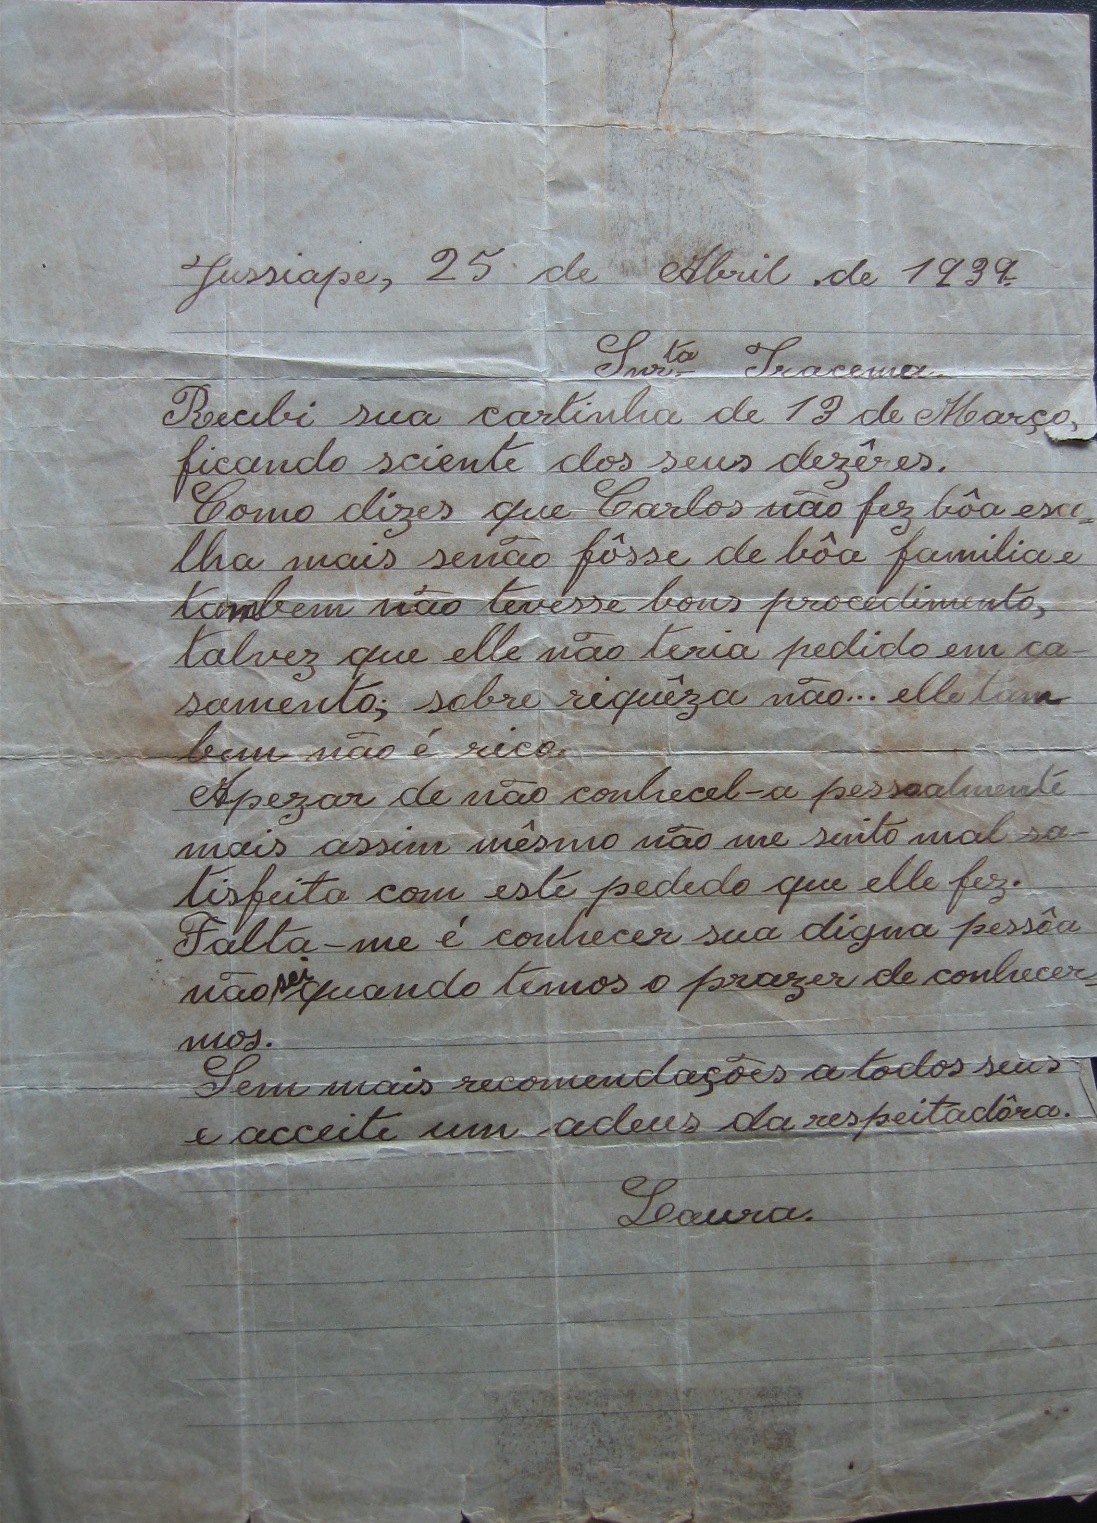 Jussiape, 25 de Abril de 1939.
Snrta Iracema.
Recibi sua cartinha de 13 de Março,
ficando sciente dos seus dezêres.
Como dizes que Carlos não fez bôa esco-
lha mais senão fôsse de bôa familia e
tambem não tevesse bons procedimento,
talvez que elle não teria pedido em ca-
samento; sobre riquêza não... elle tam
bem não é rico.
Apezar de não conhecel-a pessoalmente
mais assim mêsmo não me sinto mal sa-
tisfeita com este pededo que elle fez.
Falta-me é conhecer sua digna pessôa
não sei quando temos o prazer de conhecer-
mos.
Sem mais recomendações a todos seus
e acceite um adeus da respeitadôra.
Laura.